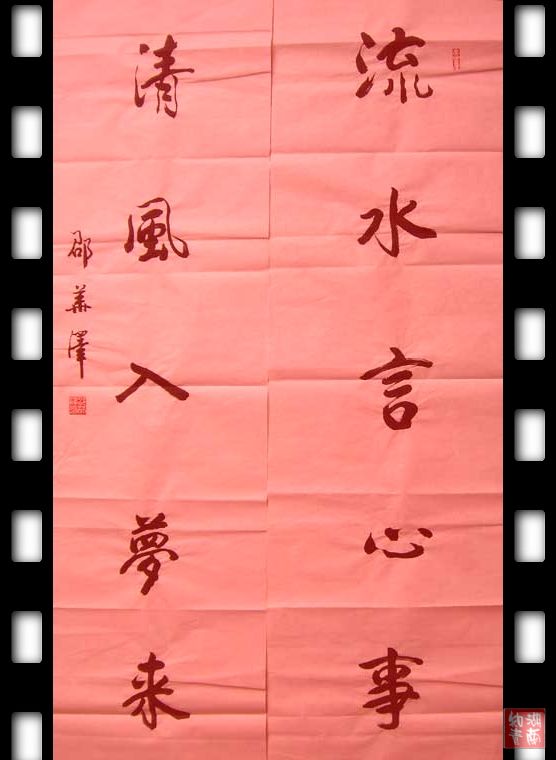 流水言心事
清風入夢来
邵華澤